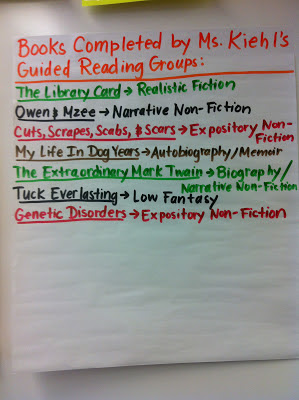 Books Completed by Ms. Kiehl's
Guided Reading Groups:
The Library Card → Realistic Fiction
Owen & Mzee → Narrative Non-Fiction
Cuts, Scrapes, Scabs, & Scars → Expository Non-
Fiction
My Life In Dog Years → Autobiography/Memoir
The Extraordinary Mark Twain → Biography/
Narrative Non-Fiction
Tuck Everlasting → Low Fantasy
Genetic Disorders → Expository Non-Fiction